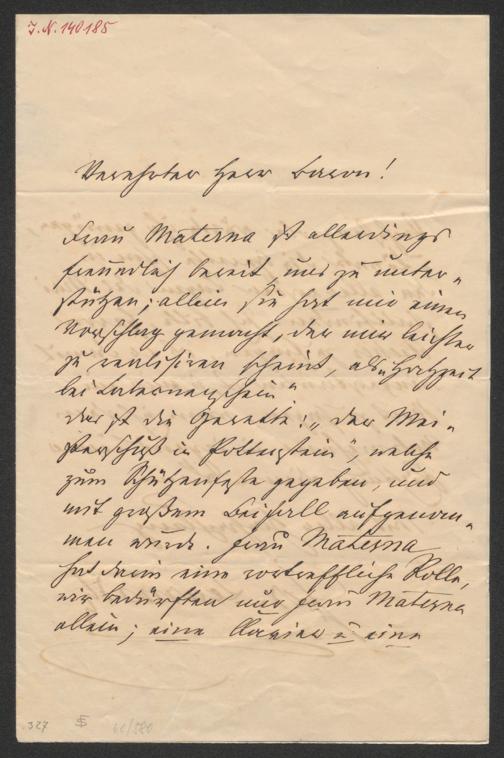 J.N. 140185
Verehrter Herr Baron!
Frau Materna ist allerdings
freundlich bereit, uns zu unter-
stützen; allein sie hat mir einen
Vorschlag gemacht, der mir leichter
zu realisiren scheint, als „Hochzeit
bei Laternenschein“
das ist die Operette: „Der Mei-
sterschuß in Pottenstein“, welche
zum Schützenfeste gegeben, und
mit großem Beifall aufgenom-
men wurde. Frau Materna
hat darin eine vortreffliche Rolle,
wir bedürften nur Frau Materna
allein; eine Clavier u eine
327
61/580